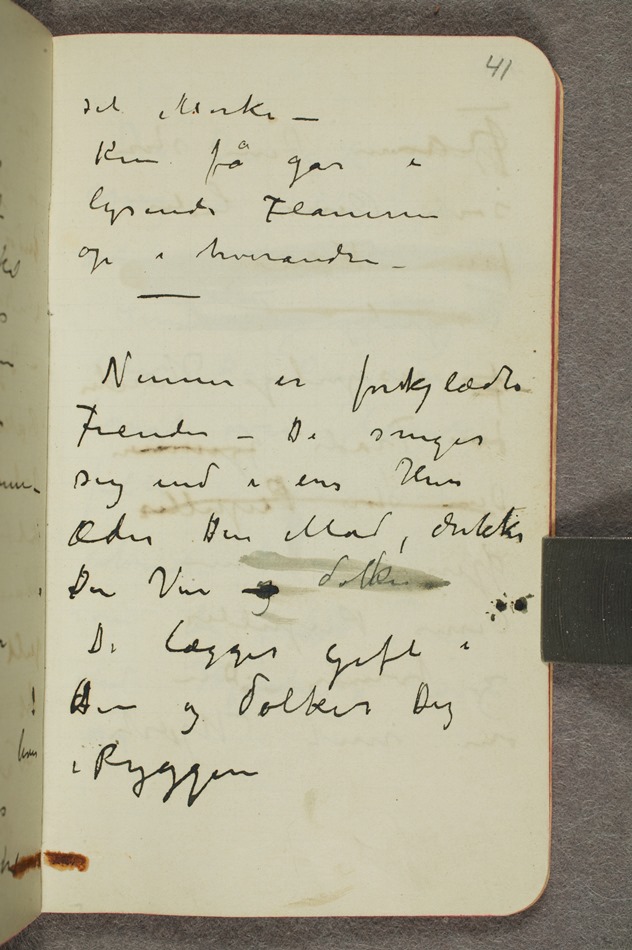 41
det Mørke –
Kun få går i
lysende Flammer
op i hverandre –
Venner er forklædte
Fiender – De sniger
sig ind i ens Hus
Æder Din Mad, drikker
Din Vin og dolker
De lægger gift i
Den og dolker Dig
i Ryggen